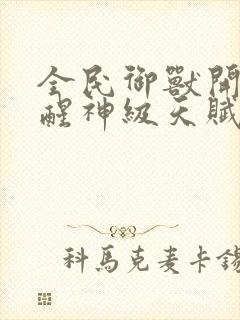 全民御獸開
醒神級天賦
科馬克麦卡錫